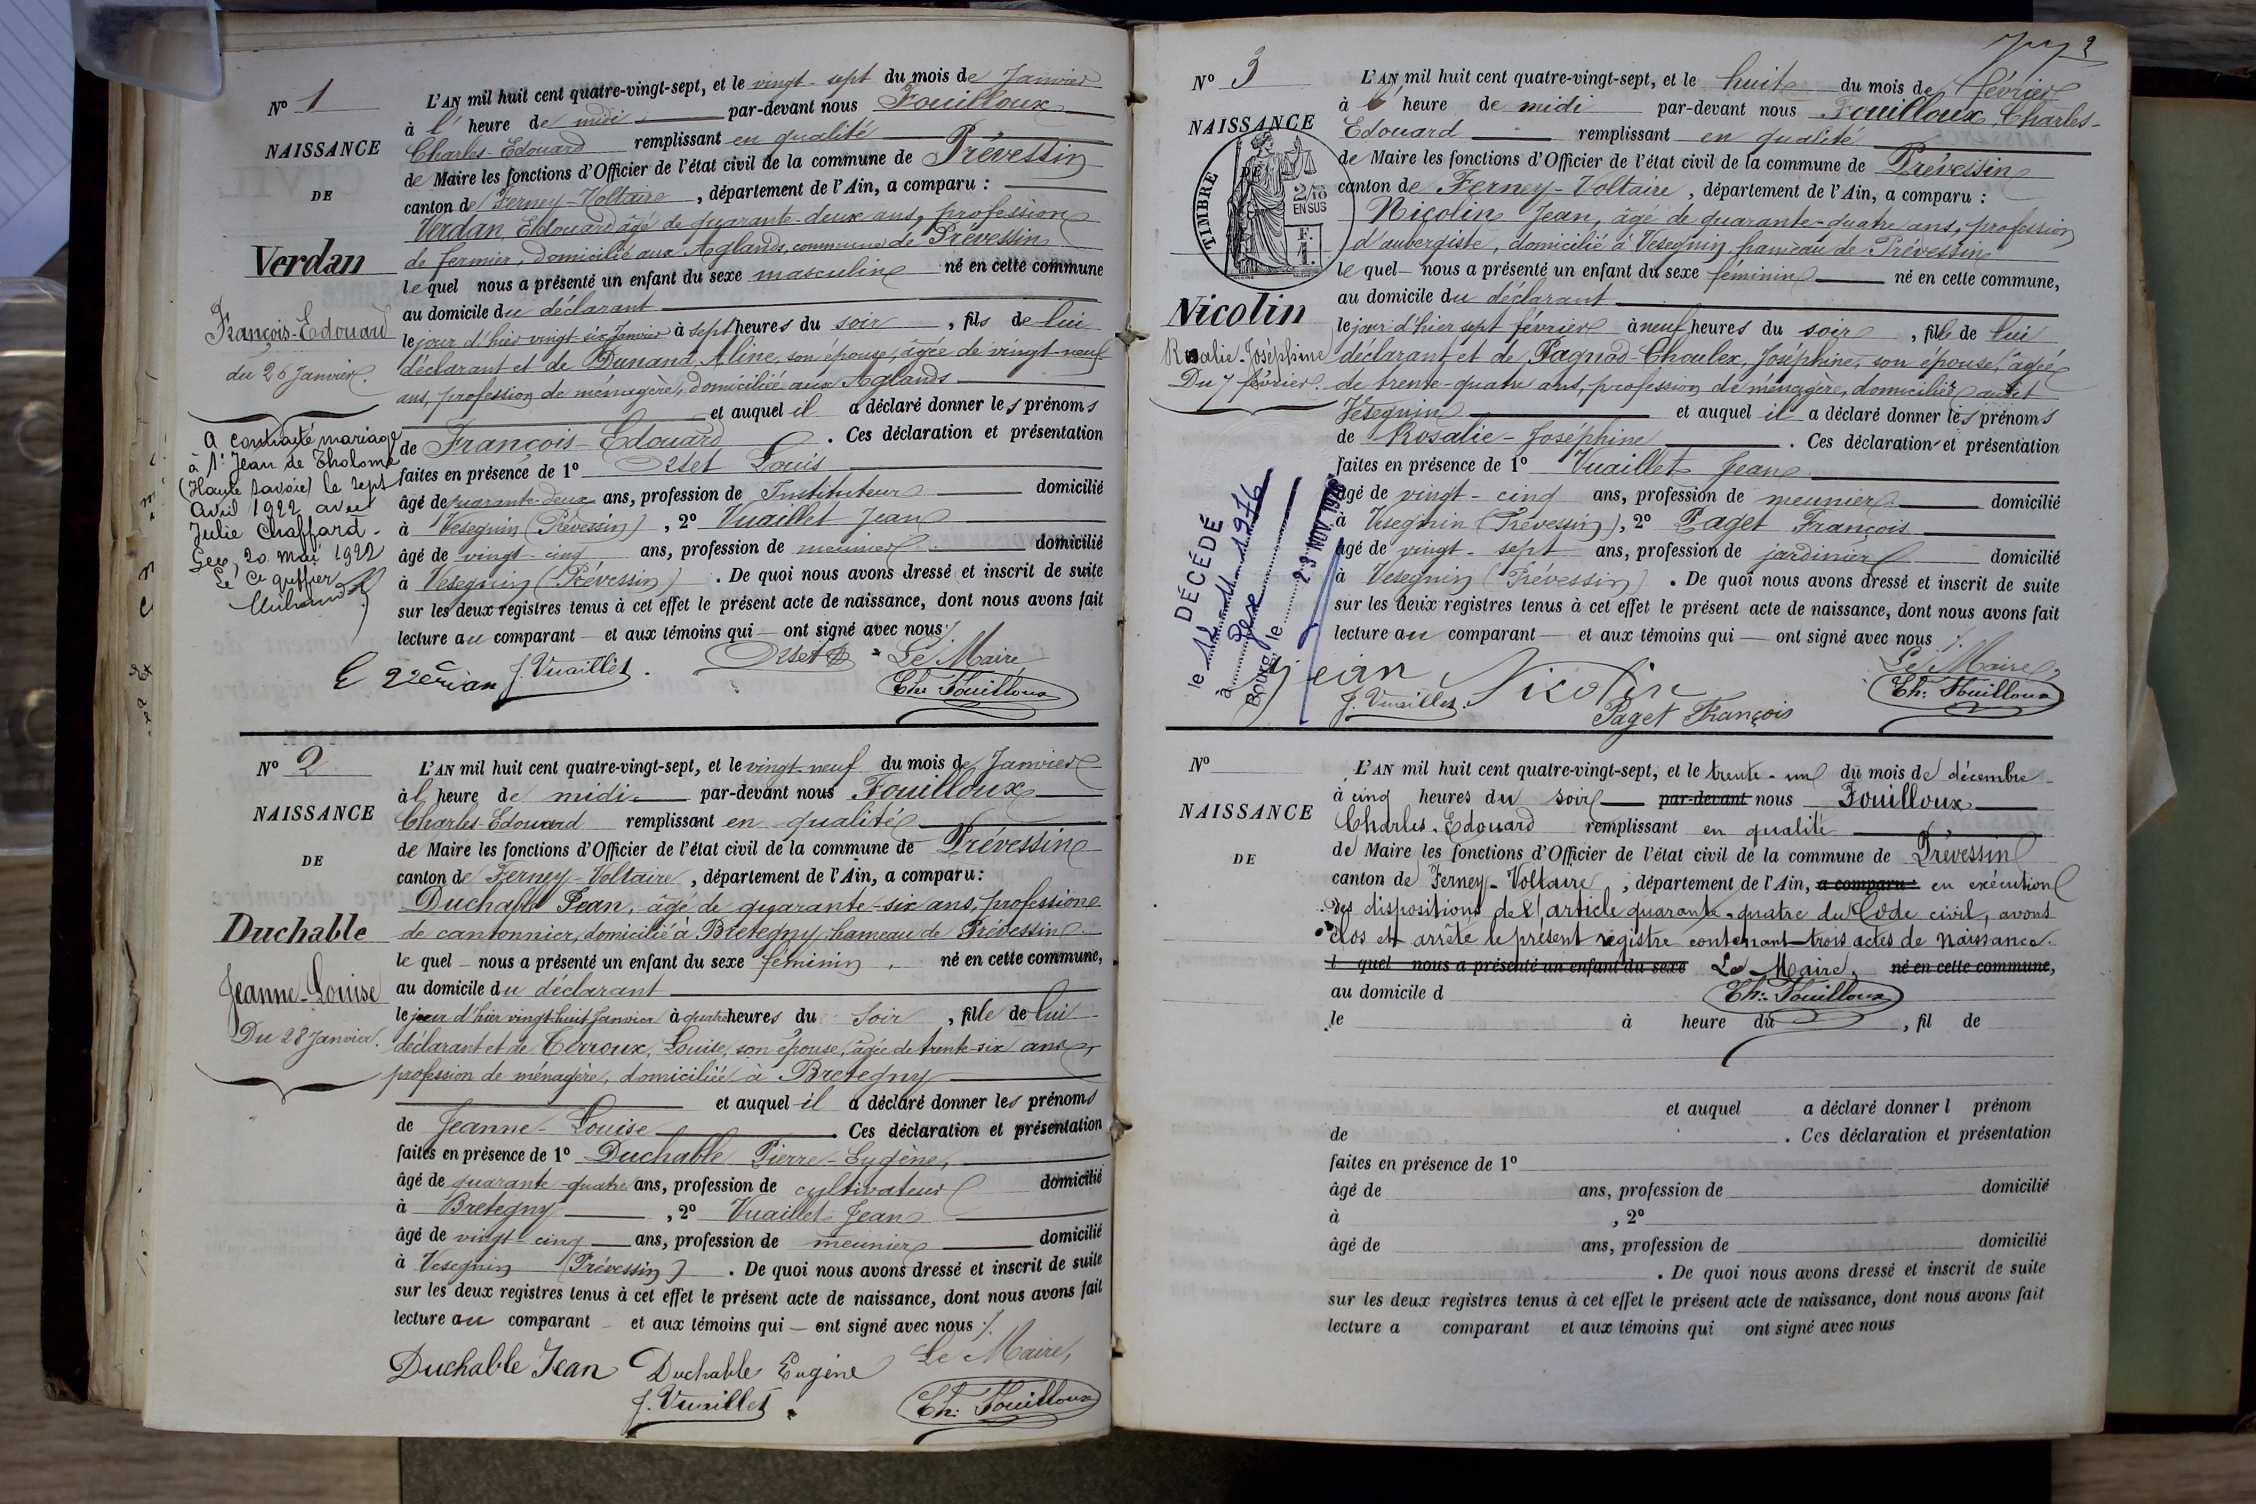 N° 1
NAISSANCE
DE
Verdan
François-Edouard
du 26 Janvier.
a contracté mariage
à St Jean de Tholome
(Haute Savoie) le sept
avril 1922 avec
Julie Chaffard.
Gex, 20 mai 1922
Le Ce greffier
L'AN mil huit cent quatre-vingt-sept, et le vingt-sept du mois de Janvier
à l' heure de midi par-devant nous Fouilloux
Charles-Edouard remplissant en qualité
de Maire les fonctions d'Officier de l'état civil de la commune de Prévessin
canton de Ferney-Voltaire, département de l'Ain, a comparu :
Verdan, Edouard âgé de quarante-deux ans, profession
de fermier, domicilié aux Aglands, commune de Prévessin
lequel nous a présenté un enfant du sexe masculin né en cette commune
au domicile du déclarant
le jour d'hier vingt-six Janvier à sept heures du soir, fils de lui
déclarant et de Dunand, Aline, son épouse, âgée de vingt-neuf
ans, profession de ménagère, domiciliée aux Aglands
et auquel il a déclaré donner les prénoms
de François-Edouard. Ces déclaration et présentation
faites en présence de 1° Orset Louis
âgé de quarante-deux ans, profession de Instituteur domicilié
à Vesegnin (Prévessin), 2° Vuaillet Jean
âgé de vingt-cinq ans, profession de meunier domicilié
à Vesegnin (Prévessin). De quoi nous avons dressé et inscrit de suite
sur les deux registres tenus à cet effet le présent acte de naissance, dont nous avons fait
lecture au comparant et aux témoins qui ont signé avec nous
J. Vuaillet. Orset Le Maire
Ch: Fouilloux
N° 2
NAISSANCE
DE
Duchable
Jeanne-Louise
Du 28 Janvier.
L'AN mil huit cent quatre-vingt-sept, et le vingt-neuf du mois de Janvier
à l' heure de midi par-devant nous Fouilloux
Charles-Edouard remplissant en qualité
de Maire les fonctions d'Officier de l'état civil de la commune de Prévessin
canton de Ferney-Voltaire, département de l'Ain, a comparu :
Duchable Jean, âgé de quarante-six ans, profession
de cantonnier, domicilié à Bretegny, hameau de Prévessin
lequel nous a présenté un enfant du sexe féminin, né en cette commune,
au domicile du déclarant
le jour d'hier vingt-huit Janvier à quatre heures du soir, fille de lui
déclarant et de Terroux, Louise, son épouse, âgée de trente-six ans,
profession de ménagère, domiciliée à Bretegny
et auquel il a déclaré donner les prénoms
de Jeanne-Louise. Ces déclaration et présentation
faites en présence de 1° Duchable Pierre-Eugène,
âgé de quarante-quatre ans, profession de cultivateur domicilié
à Bretegny, 2° Vuaillet Jean
âgé de vingt-cinq ans, profession de meunier domicilié
à Vesegnin (Prévessin). De quoi nous avons dressé et inscrit de suite
sur les deux registres tenus à cet effet le présent acte de naissance, dont nous avons fait
lecture au comparant et aux témoins qui ont signé avec nous
Duchable Jean Duchable Eugène Le Maire,
J. Vuaillet. Ch: Fouilloux
N° 3
NAISSANCE
TIMBRE DE
2/10
EN SUS
F.
1.
Nicolin
Rosalie-Joséphine
Du 7 février.
DÉCÉDÉ
le 11-11-1976
à Gex
Bourg, le 23 NOV. 1976
L'AN mil huit cent quatre-vingt-sept, et le huit du mois de février
à l' heure de midi par-devant nous Fouilloux, Charles-
Edouard remplissant en qualité
de Maire les fonctions d'Officier de l'état civil de la commune de Prévessin
canton de Ferney-Voltaire, département de l'Ain, a comparu :
Nicolin Jean, âgé de quarante-quatre ans, profession
d'aubergiste, domicilié à Vesegnin, hameau de Prévessin
lequel nous a présenté un enfant du sexe féminin né en cette commune,
au domicile du déclarant
le jour d'hier sept février à neuf heures du soir, fille de lui
déclarant et de Pagnod-Choulex, Joséphine, son épouse, âgée
de trente-quatre ans, profession de ménagère, domiciliée audit
Vesegnin et auquel il a déclaré donner les prénoms
de Rosalie-Joséphine. Ces déclaration et présentation
faites en présence de 1° Vuaillet Jean
âgé de vingt-cinq ans, profession de meunier domicilié
à Vesegnin (Prévessin), 2° Paget François
âgé de vingt-sept ans, profession de jardinier domicilié
à Vesegnin (Prévessin). De quoi nous avons dressé et inscrit de suite
sur les deux registres tenus à cet effet le présent acte de naissance, dont nous avons fait
lecture au comparant et aux témoins qui ont signé avec nous
jean Nicolin Le Maire,
J. Vuaillet. Paget François Ch: Fouilloux
N°
NAISSANCE
DE
L'AN mil huit cent quatre-vingt-sept, et le trente-un du mois de décembre
à cinq heures du soir par-devant nous Fouilloux
Charles-Edouard remplissant en qualité
de Maire les fonctions d'Officier de l'état civil de la commune de Prévessin
canton de Ferney-Voltaire, département de l'Ain, a comparu : en exécution
des dispositions de l'article quarante-quatre du Code civil, avons
clos et arrêté le présent registre contenant trois actes de naissance.
l quel nous a présenté un enfant du sexe Le Maire, né en cette commune,
au domicile d Ch: Fouilloux
le à heure du , fil de
et auquel a déclaré donner l prénom
de . Ces déclaration et présentation
faites en présence de 1°
âgé de ans, profession de domicilié
à , 2°
âgé de ans, profession de domicilié
. De quoi nous avons dressé et inscrit de suite
sur les deux registres tenus à cet effet le présent acte de naissance, dont nous avons fait
lecture a comparant et aux témoins qui ont signé avec nous